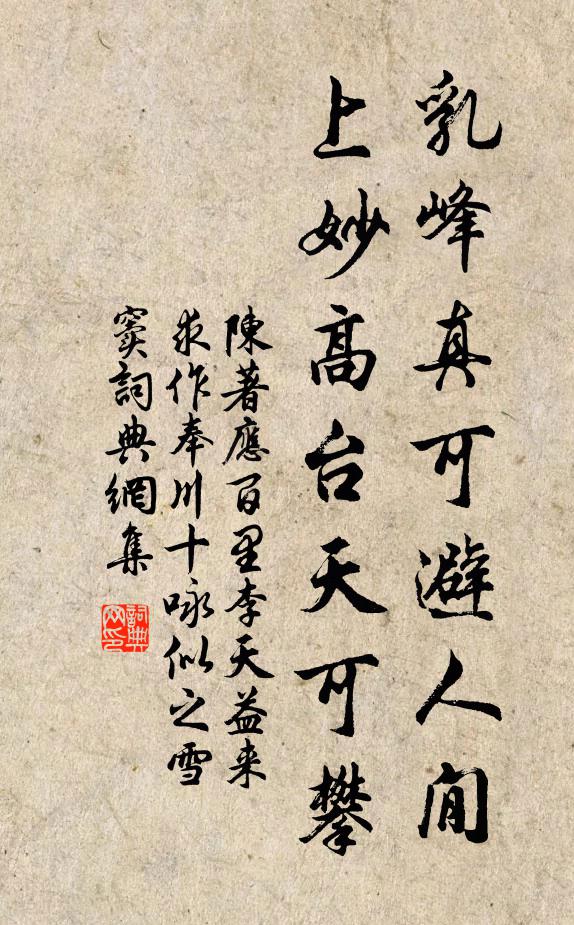 乳峰真可避人間
上妙高台天可攀
陳著應百里李天益来
求作奉川十咏似之雪
竇詞典網集
詞典
网印